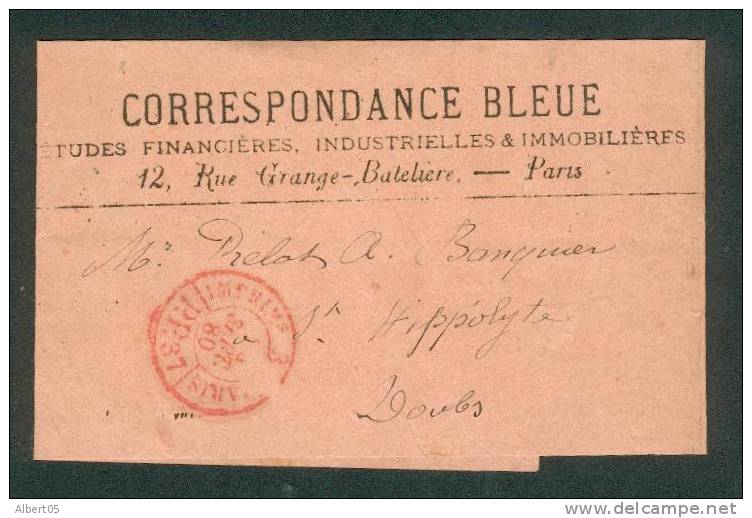 CORRESPONDANCE BLEUE
ÉTUDES FINANCIÈRES, INDUSTRIELLES & IMMOBILIÈRES
12, Rue Grange-Batelière. — Paris
Mr. Prélot A. Banquier
a St Hippolyte
Doubs
IMPRIMÉS
PP 37
80
Albert05
www.delcampe.net